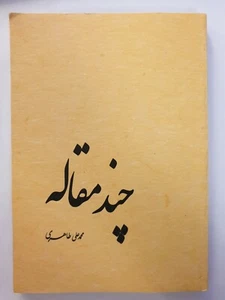 چند مقاله
محمد علی طاهری